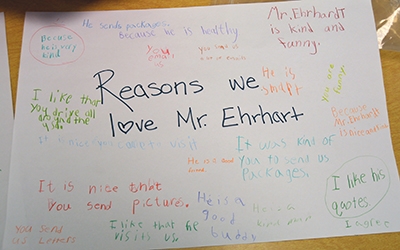 Because
he is very
kind
He sends packages.
because we is healthy
Mr. Ehrhardt
is kind and
funny.
You
email
us
I like that
you drive all
around the
Reasons we
love Mr. Ehrhart
He is
smart
You are
funny.
Because
Mr. Ehrhardt
is nice
It was kind of
you to send us
packages.
He is a good
It is nice that
you send picture.
He is a
good
buddy
I like his
quotes.
I agree
You send
us letters
I like that he
visits us.